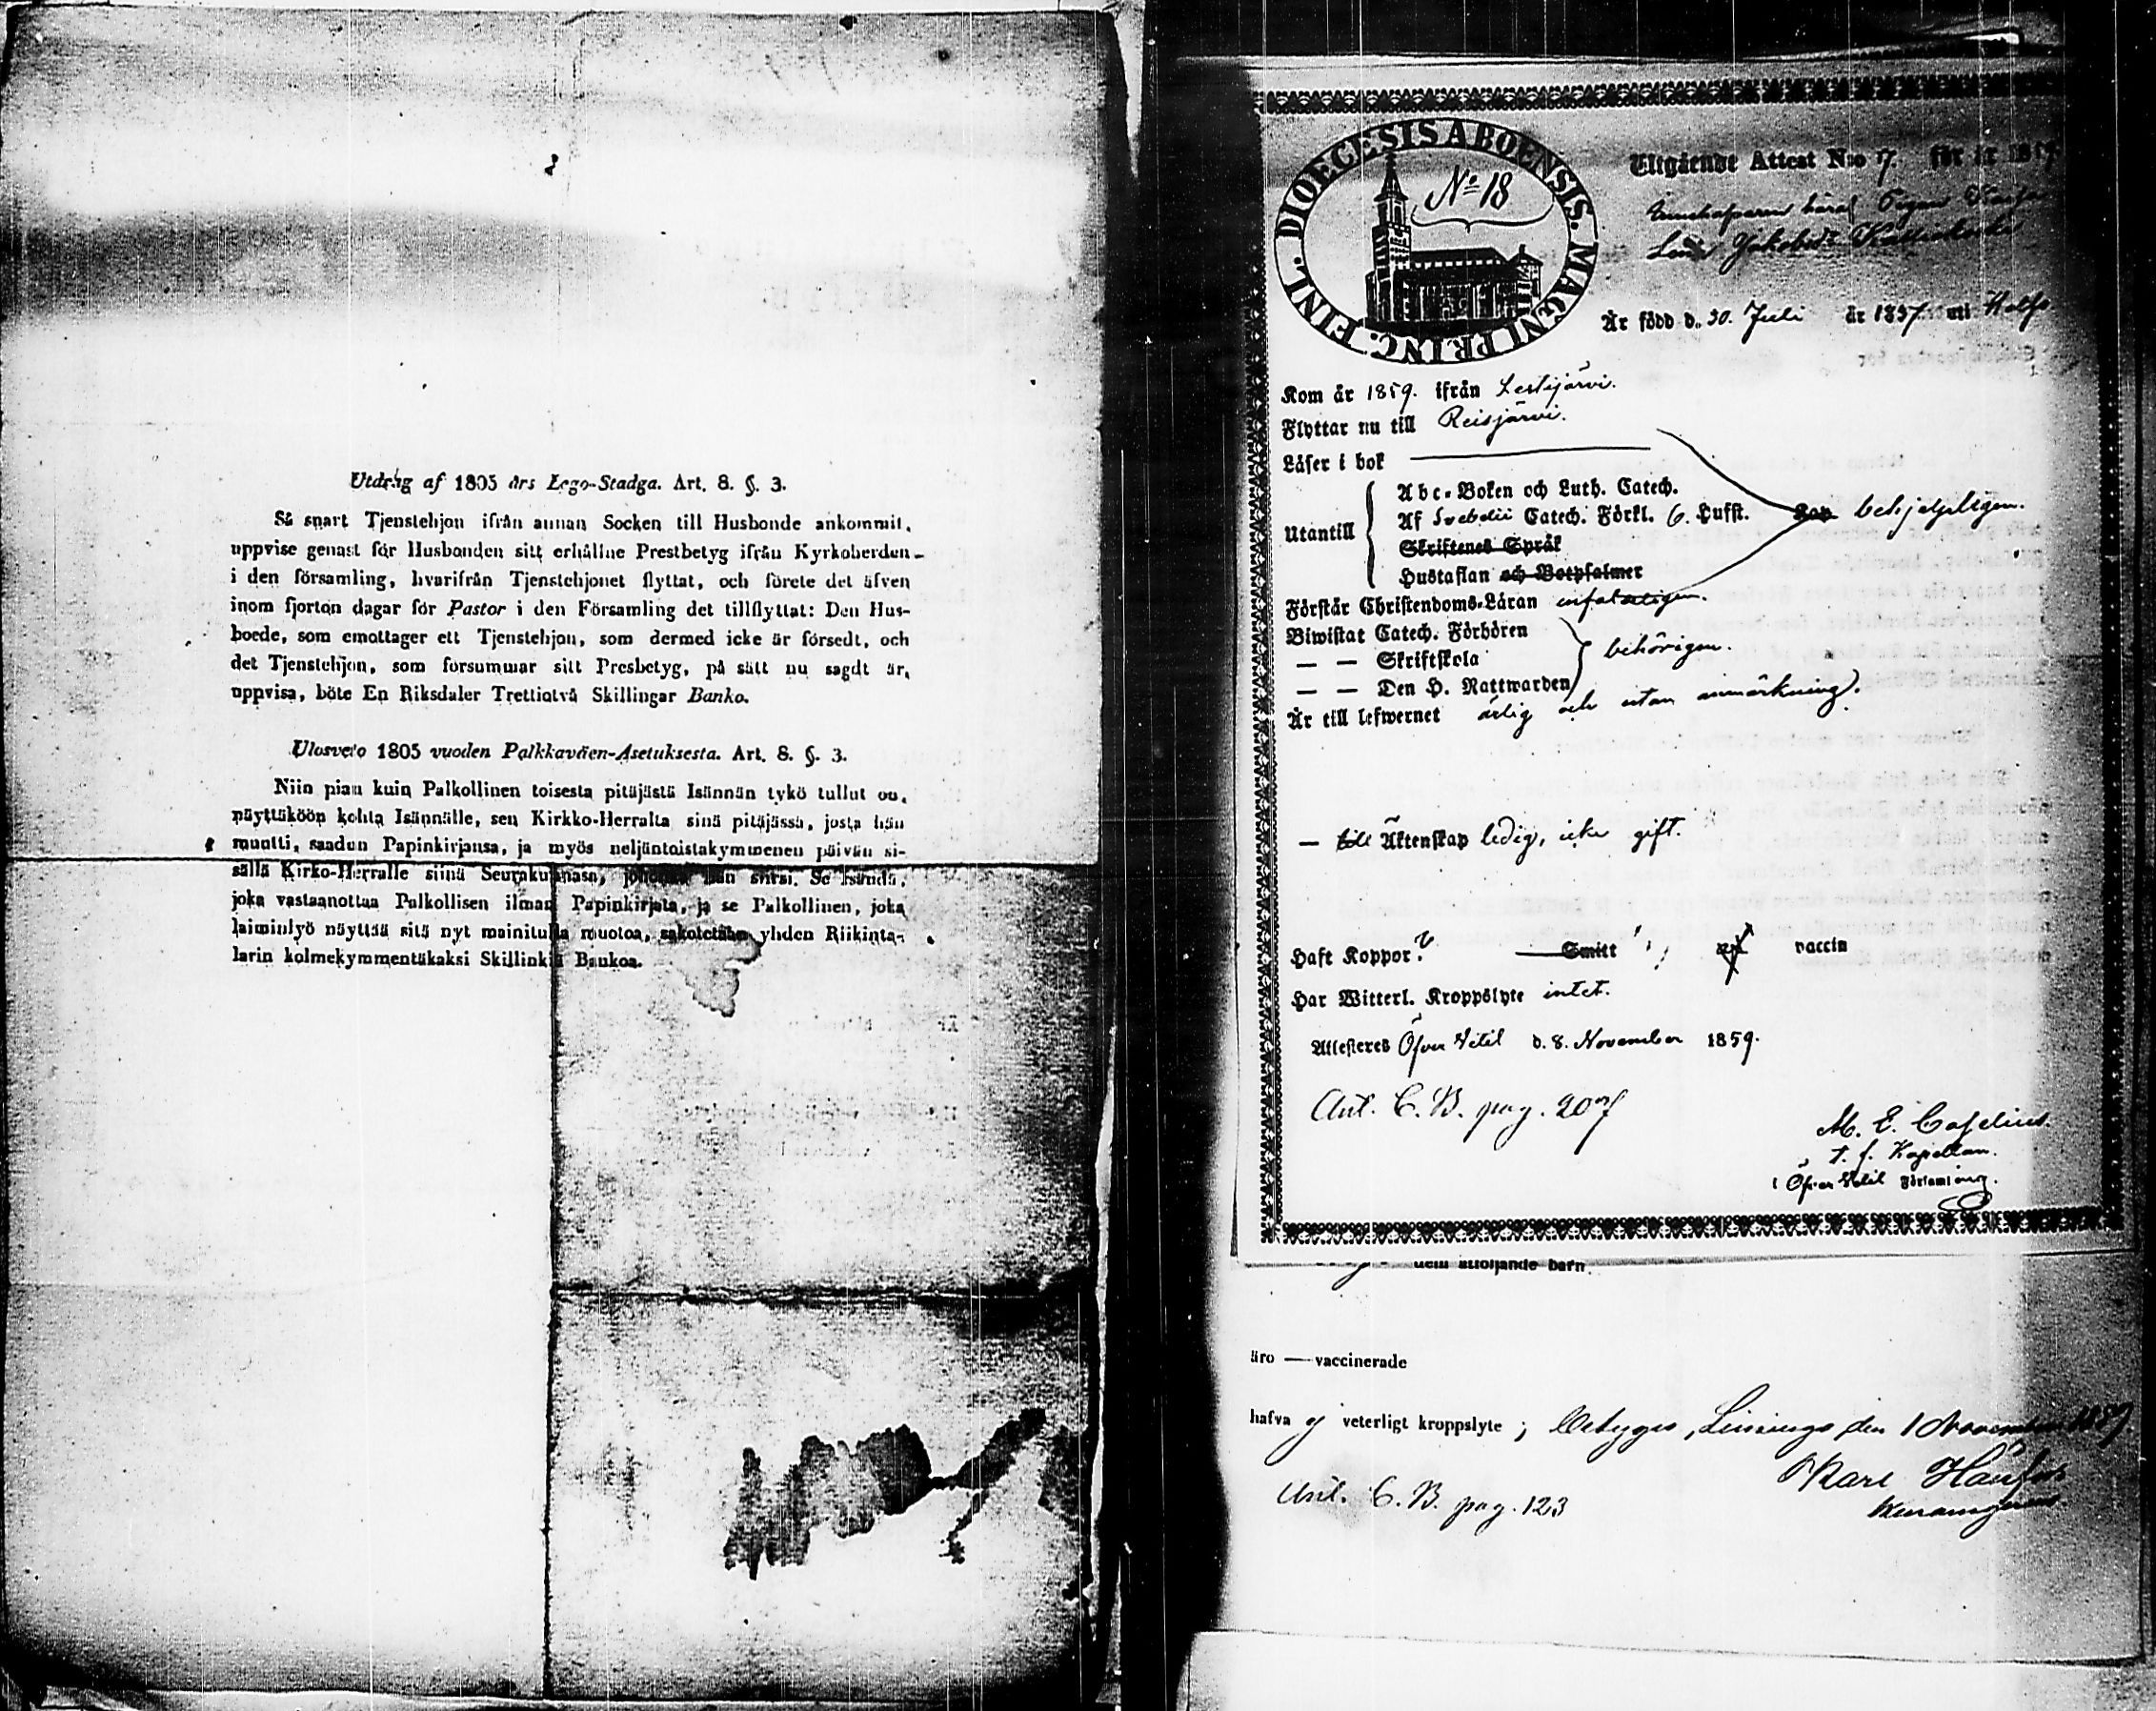 Utdrag af 1805 års Lego-Stadga. Art. 8. §. 3.
Så snart Tjenstehjon ifrån annan Socken till Husbonde ankommit,
uppvise genast för Husbonden sitt erhållne Prestbetyg ifrån Kyrkoherden
i den församling, hvarifrån Tjenstehjonet flyttat, och förete det äfven
inom fjorton dagar för Pastor i den Församling det tillflyttat: Den Hus-
boede, som emottager ett Tjenstehjon, som dermed icke är försedt, och
det Tjenstehjon, som försummar sitt Presbetyg, på sätt nu sagdt är,
uppvisa, böte En Riksdaler Trettiotvå Skillingar Banko.
Ulosveto 1805 vuoden Palkkaväen-Asetuksesta. Art. 8. §. 3.
Niin pian kuin Palkollinen toisesta pitäjästä Isännän tykö tullut on,
näyttäköön kohta Isännälle, sen Kirkko-Herralta sinä pitäjässä, josta hän
muutti, saadun Papinkirjansa, ja myös neljäntoistakymmenen päivän si-
sällä Kirko-Herralle siinä Seurakunnasa, johonka hän siirsi. Se Isändä,
joka vastaanottaa Palkollisen ilman Papinkirjata, ja se Palkollinen, joka
laiminlyö näyttää sitä nyt mainitulla muotoa, sakotetahn yhden Riikinta-
larin kolmekymmentäkaksi Skillinkiä Bankoa.
DIOECESIS ABOENSIS. MAGNI PRINC. FINL.
No 18
Utgående Attest N:o 17. för år 1859
Jakobsd:r
Är född d. 30. Juli år 1837 uti
Kom år 1859. ifrån Lestijärvi.
Flyttar nu till Reisjärvi.
Läser i bok
Utantill
Abc-Boken och Luth. Catech.
Af Svebelii Catech. Förkl. 6. Hufst. behjelpligen.
Skriftenes Språk
Hustaflan och Botpsalmer
Förstår Christendoms-Läran
Biwistat Catech. Förhören
— — Skriftskola behörigen.
— — Den H. Nattwarden
Är till lefwernet ärlig och utan anmärkning.
— till Äktenskap ledig, icke gift.
Haft Koppor? Smitt vaccin
Har Witterl. Kroppslyte intet.
Attesteras Öfver Vetil d. 8. November 1859.
Ant. C. B. pag. 207
M. E. Caselius.
t. f. Kapellan.
i Öfver Vetil Församling.
dem åtföljande barn.
äro — vaccinerade
hafva ej veterligt kroppslyte; Betygas, den 1 November 1859
Ant. C. B. pag. 123
Karl